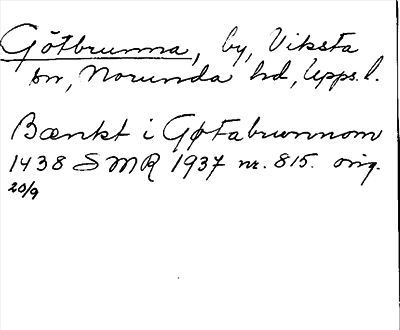 Götbrunna, by, Viksta
sn, Norunda hd, Upps. l.
Bænkt i Gøtabrunnom
1438 SMR 1937 nr. 815. orig.
20/9